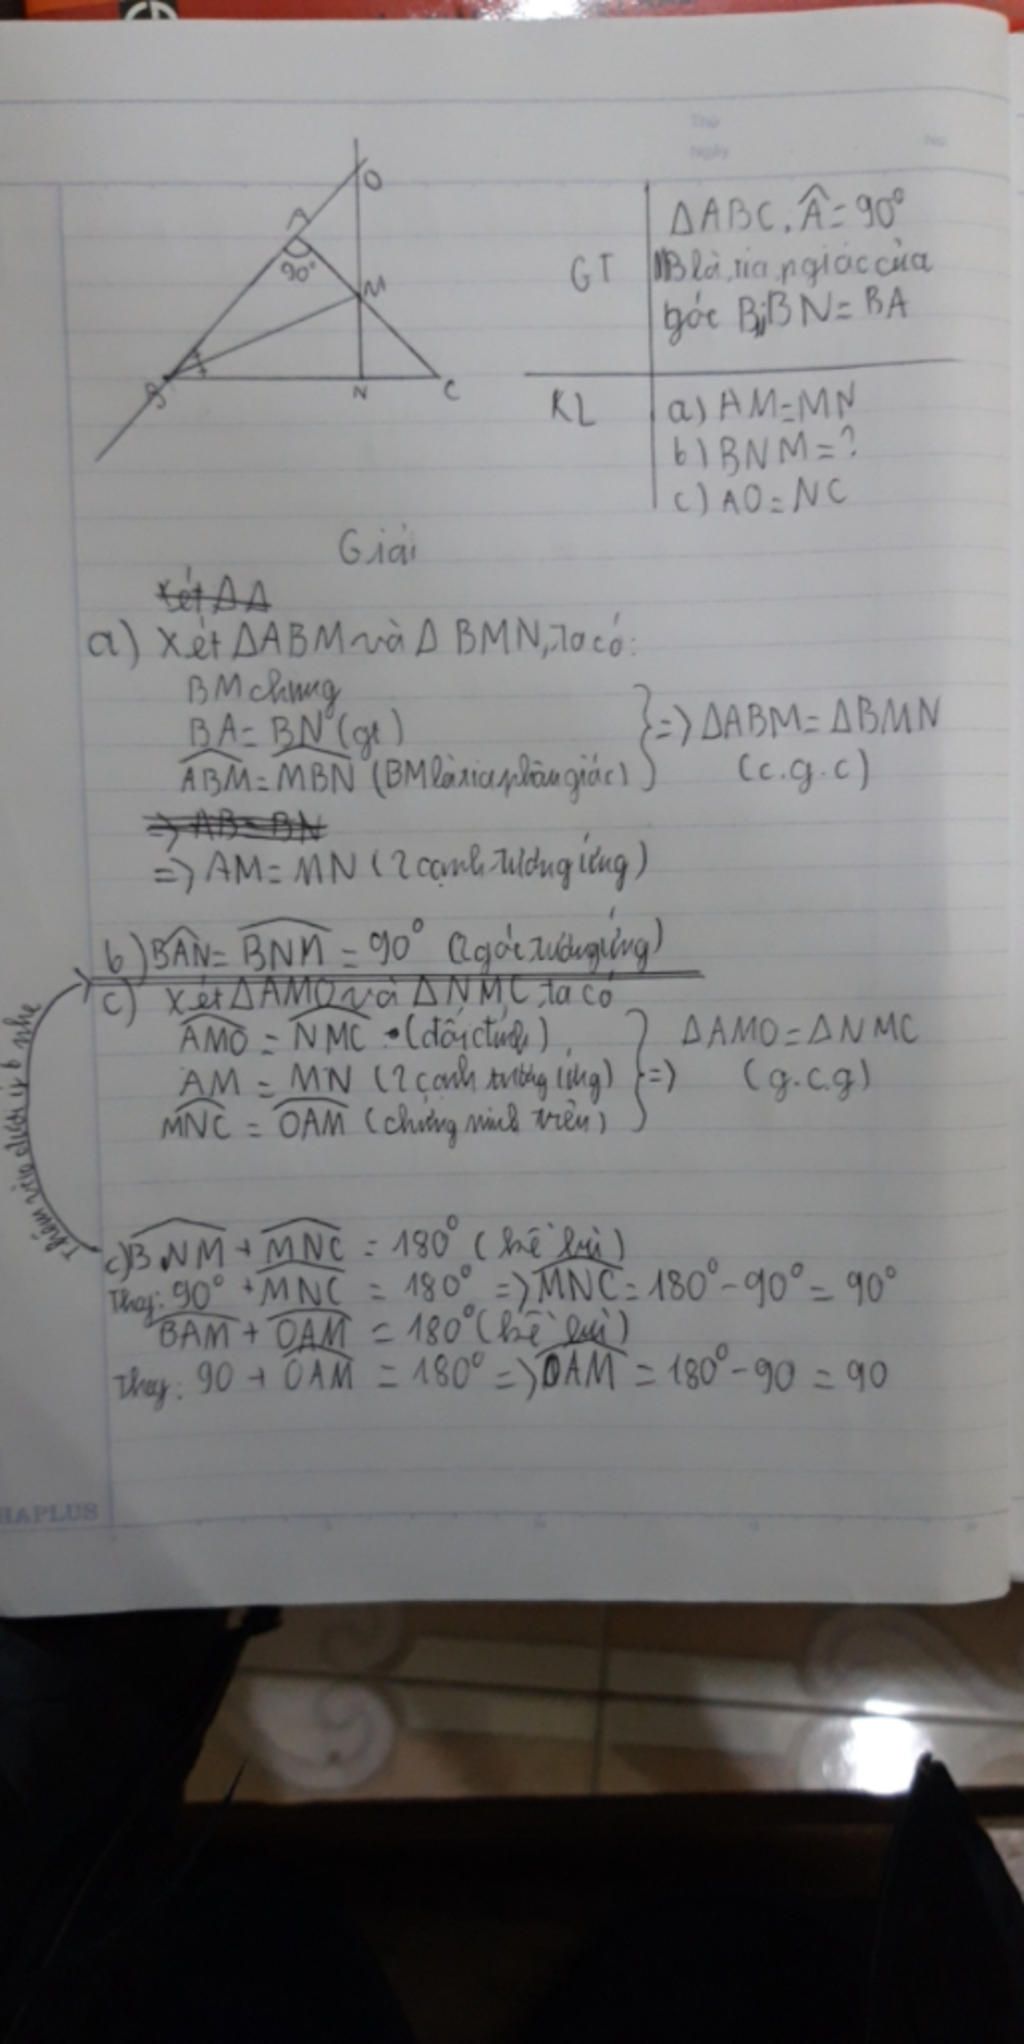 Thứ
Ngày
No.
O
A
90°
M
B
N
C
GT
ΔABC, Â = 90°
B là tia p giác của
góc B, BN = BA
KL
a) AM = MN
b) BNM = ?
c) AO = NC
Giải
Xét ΔA
a) Xét ΔABM và Δ BMN, ta có:
BM chung
BA = BN (gt)
ABM = MBN (BM là tia phân giác)
=> ΔABM = ΔBMN
(c.g.c)
=> AB = BN
=> AM = MN (2 cạnh tương ứng)
b) BAN = BNM = 90° (2 góc tương ứng)
c) Xét ΔAMO và ΔNMC, ta có
AMO = NMC (đối đỉnh)
AM = MN (2 cạnh tương ứng)
MNC = OAM (chứng minh trên)
=> ΔAMO = ΔNMC
(g.c.g)
Thêm vào dưới ý b nhe
c) BNM + MNC = 180° (kề bù)
Thay: 90° + MNC = 180° => MNC = 180° - 90° = 90°
BAM + OAM = 180° (kề bù)
Thay: 90 + OAM = 180° => OAM = 180° - 90 = 90
HAPLUS